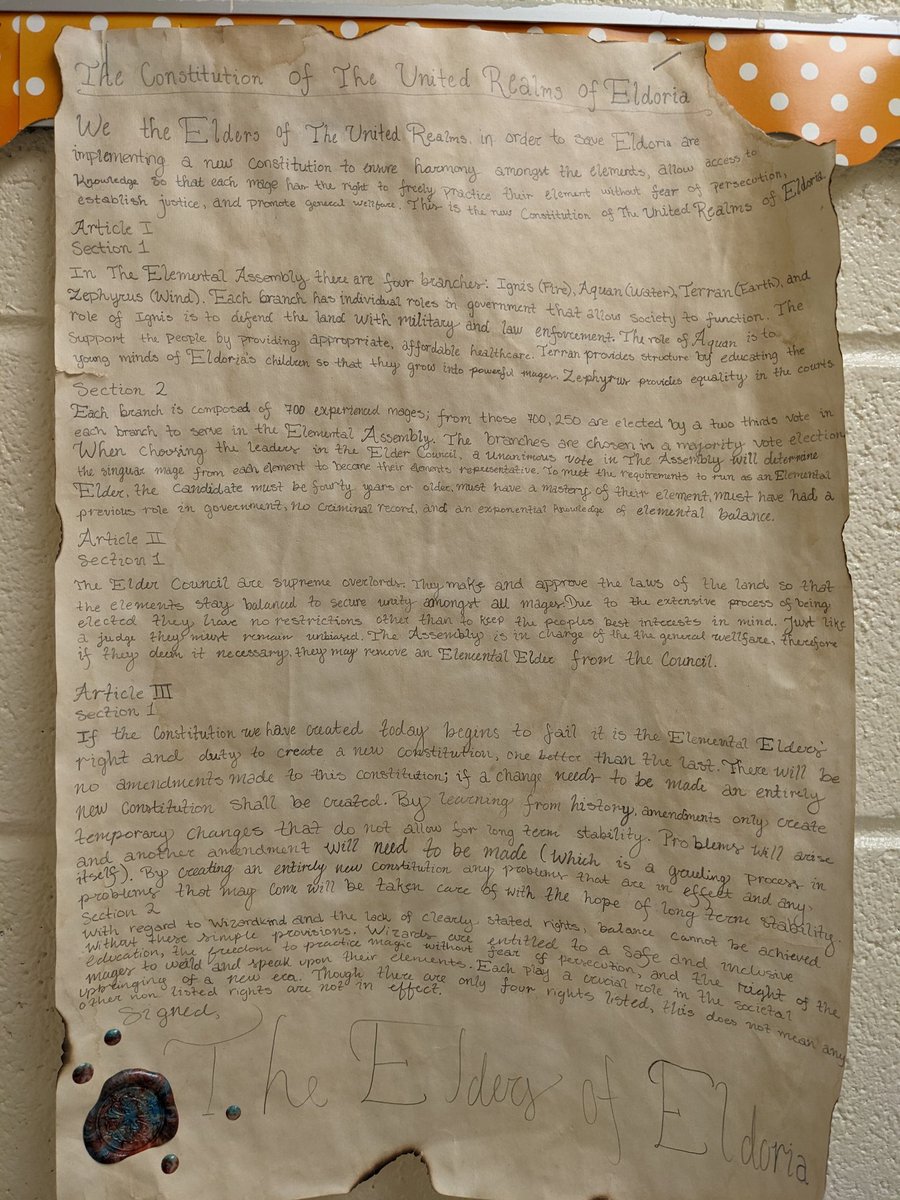 The Constitution of The United Realms of Eldoria
We the Elders of The United Realms, in order to save Eldoria are
implementing a new constitution to ensure harmony amongst the elements, allow access to
Knowledge so that each mage has the right to freely practice their element without fear of persecution,
establish justice, and promote general wellfare. This is the new Constitution of The United Realms of Eldoria
Article I
Section 1
In The Elemental Assembly there are four branches: Ignis (Fire), Aquan (Water), Terran (Earth), and
Zephyrus (Wind). Each branch has individual roles in government that allow society to function. The
role of Ignis is to defend the land with military and law enforcement. The role of Aquan is to
Support the people by providing appropriate, affordable healthcare. Terran provides structure by educating the
young minds of Eldoria's children so that they grow into powerful mages. Zephyrus provides equality in the courts
Section 2
Each branch is composed of 700 experienced mages; from those 700, 250 are elected by a two thirds vote in
each branch to serve in the Elemental Assembly. The branches are chosen in a majority vote election
When choosing the leaders in the Elder Council, a unanimous vote in The Assembly will determine
the singular mage from each element to become their elements representative. To meet the requirements to run as an Elemental
Elder, the candidate must be fourty years or older, must have a mastery of their element, must have had a
previous role in government, no criminal record, and an exponential knowledge of elemental balance.
Article II
Section 1
The Elder Council are supreme overlords. They make and approve the laws of the land so that
the elements stay balanced to secure unity amongst all mages. Due to the extensive process of being
elected they have no restrictions other than to keep the peoples best interests in mind. Just like
a judge they must remain unbiased. The Assembly is in charge of the the general wellfare, therefore
if they deem it necessary, they may remove an Elemental Elder from the Council.
Article III
Section 1
If the Constitution we have created today begins to fail it is the Elemental Elders
right and duty to create a new constitution, one better than the last. There will be
no amendments made to this constitution; if a change needs to be made an entirely
new Constitution shall be created. By learning from history, amendments only create
temporary changes that do not allow for long term stability. Problems will arise
and another amendment will need to be made (which is a grueling process in
itself). By creating an entirely new Constitution any problems that are in effect and any
problems that may come will be taken care of with the hope of long term stability.
Section 2
With regard to Wizardkind and the lack of clearly stated rights, balance cannot be achieved
without these simple provisions. Wizards are entitled to a safe and inclusive
education, the freedom to practice magic without fear of persecution, and the right of the
mages to weild and speak upon their elements. Each play a crucial role in the societal
upbringing of a new era. Though there are only four rights listed, this does not mean any
other non listed rights are not in effect.
Signed,
The Elders of Eldoria